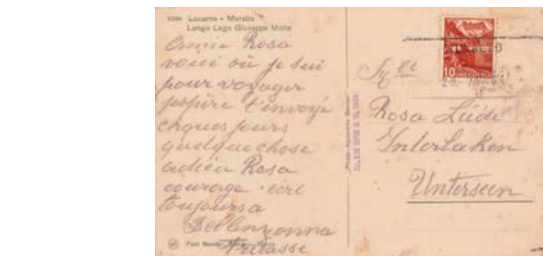 Locarno - Muralto
Lungo Lago Giuseppe Motta
Amie Rosa
voici où je sui
pour voyager
jespère t'envoyé
chques jours
quelque chose
adieu Rosa
courage ecri
toujours a
Bellenzonna
10
Rosa
Interlaken
Unterseen